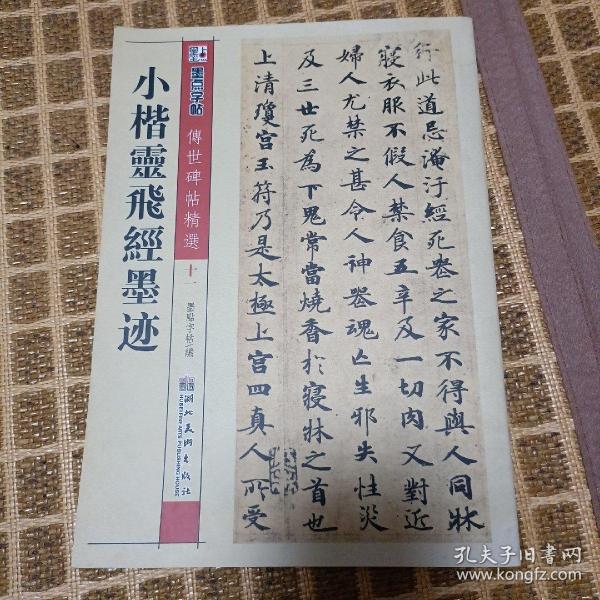 小楷靈飛經墨迹
墨点字帖
傳世碑帖精選
十一
墨點字帖 編
湖北美术出版社
HUBEI FINE ARTS PUBLISHING HOUSE
行此道忌淹汙經死喪之家不得與人同牀
寢衣服不假人禁食五辛及一切肉又對近
婦人尤禁之甚令人神喪魂亡生邪失性災
及三世死為下鬼常當燒香於寢牀之首也
上清瓊宮玉符乃是太極上宮四真人所受
孔夫子旧書网
www.kongfz.com